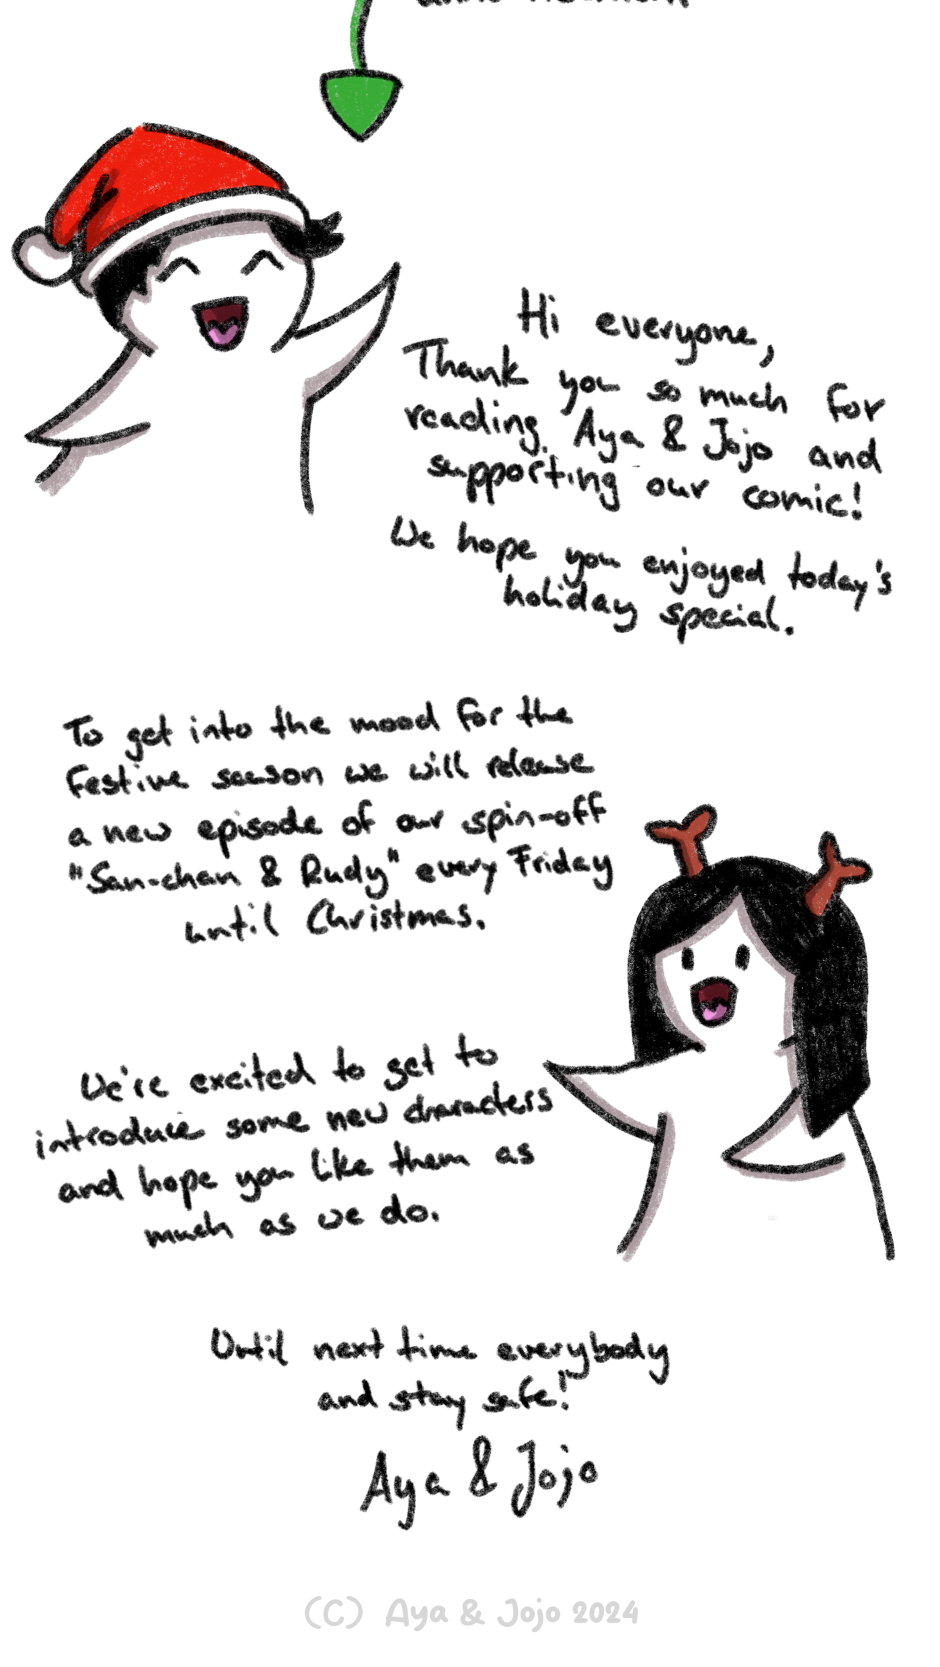 Hi everyone,
Thank you so much for
reading Aya & Jojo and
supporting our comic!
We hope you enjoyed today's
holiday special.
To get into the mood for the
festive season we will release
a new episode of our spin-off
"San-chan & Rudy" every Friday
until Christmas.
We're excited to get to
introduce some new characters
and hope you like them as
much as we do.
Until next time everybody
and stay safe!
Aya & Jojo
(C) Aya & Jojo 2024